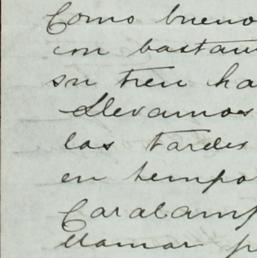 Como bueno
con bastan
su tren ha
Llevamos
las tardes
en tempo
Caralamp
llamar p